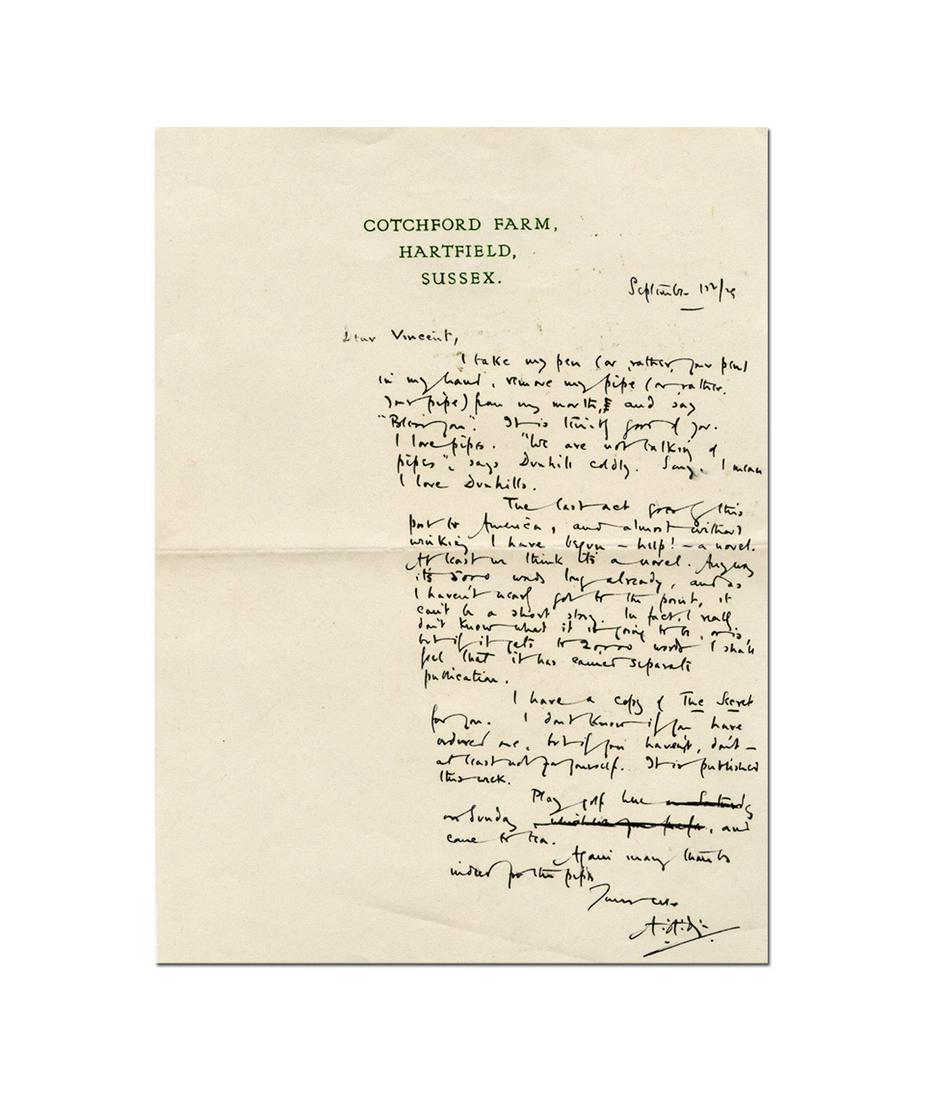 COTCHFORD FARM,
HARTFIELD,
SUSSEX.
September
Dear Vincent,
I take my pen (or rather, your pen)
in my hand, remove my pipe (or rather,
your pipe) from my mouth, and say
"Bless you". It is good of you.
I love pipes. "We are not talking of
pipes", says Dunhill coldly. Sorry. I mean
I love Dunhills.
The last act goes by this
post to America, and almost without
winking I have begun – help! – a novel.
At least we think it's a novel. Anyway
it's 5000 words long already, and as
I haven't nearly got to the point, it
can't be a short story. In fact, I really
don't know what it is going to be, or is,
but if it gets to 20,000 words I shall
feel that it has earned separate
publication.
I have a copy of The Secret
for you. I don't know if you have
ordered one, but if you haven't, don't –
at least not for yourself. It is published
this week.
Play golf here on Saturday
on Sunday, which you prefer, and
come to tea.
Again many thanks
indeed for the pipes
Yours ever
A.A.M.